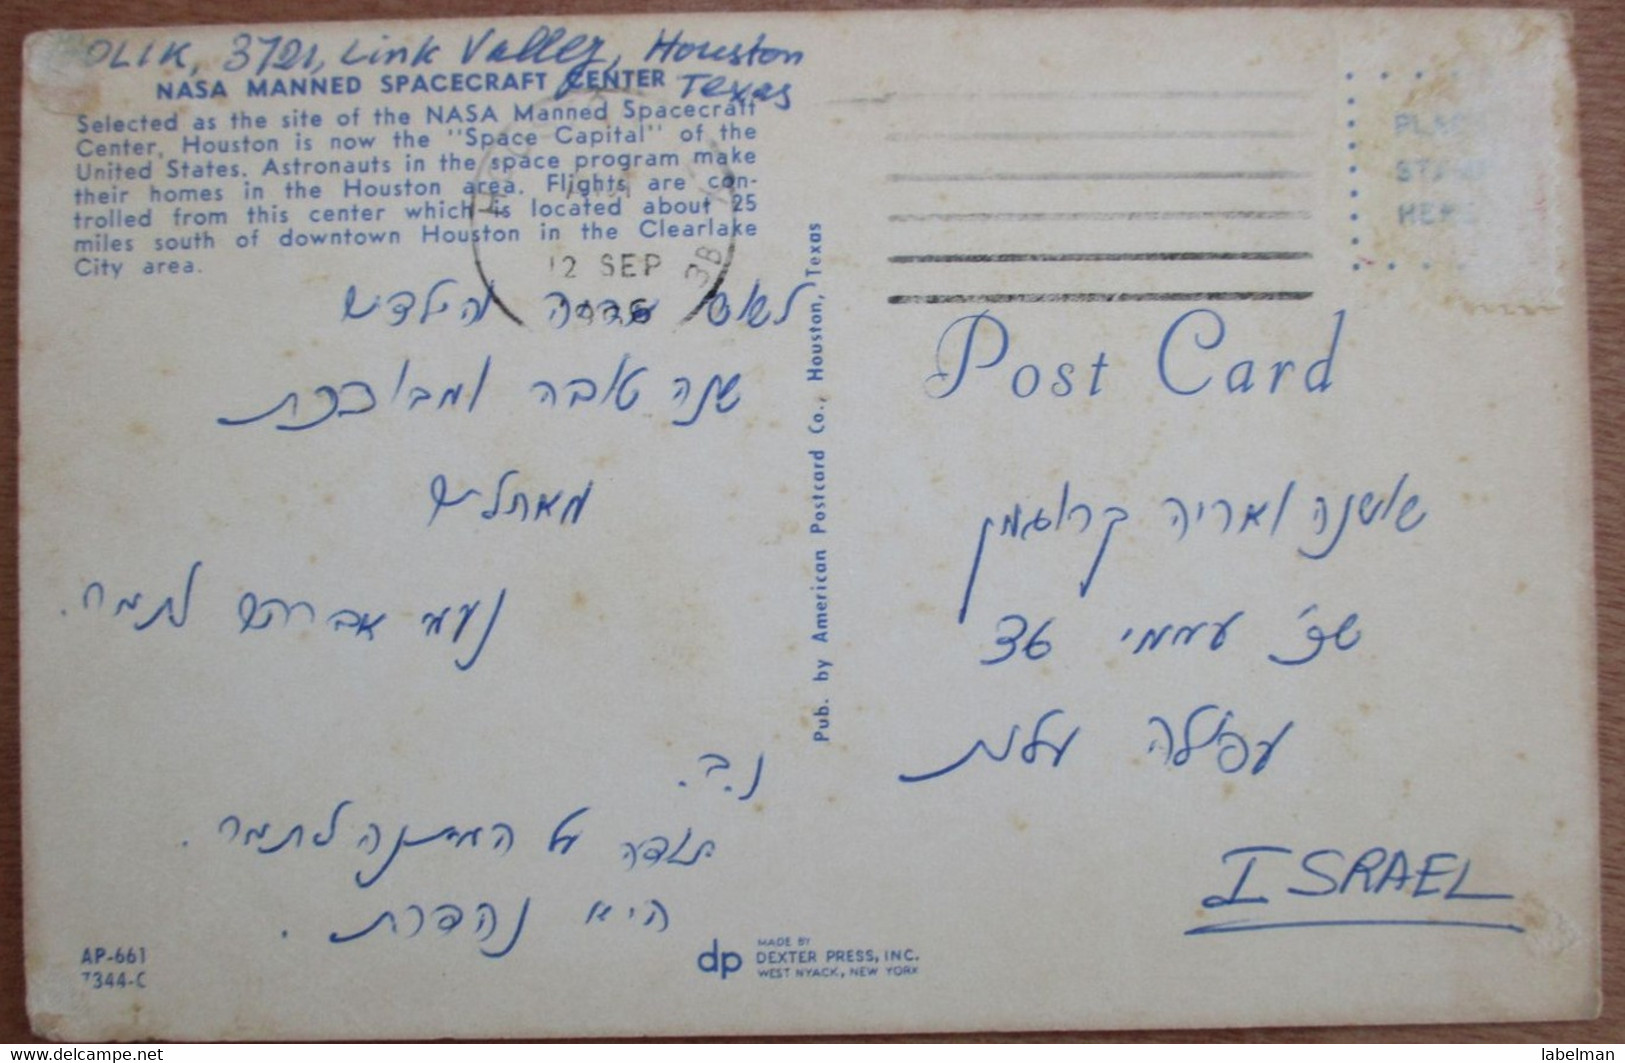 OLIK, 3721, Link Valley, Houston
Texas
NASA MANNED SPACECRAFT CENTER
Selected as the site of the NASA Manned Spacecraft
Center, Houston is now the "Space Capital" of the
United States. Astronauts in the space program make
their homes in the Houston area. Flights are con-
trolled from this center which is located about 25
miles south of downtown Houston in the Clearlake
City area.
12 SEP
והילדים
שנה טובה ומבורכת
מאתלים
נעמי אברהם לתמר.
נ.ב.
תודה על המתנה לתמר.
היא נהדרת.
AP-661
7344-C
Pub. by American Postcard Co., Houston, Texas
dp MADE BY
DEXTER PRESS, INC.
WEST NYACK, NEW YORK
PLACE
STAMP
HERE
Post Card
שושנה ואריה קרוגמן
שכ' עממי
עפולה עלית
ISRAEL
labelman
delcampe.net